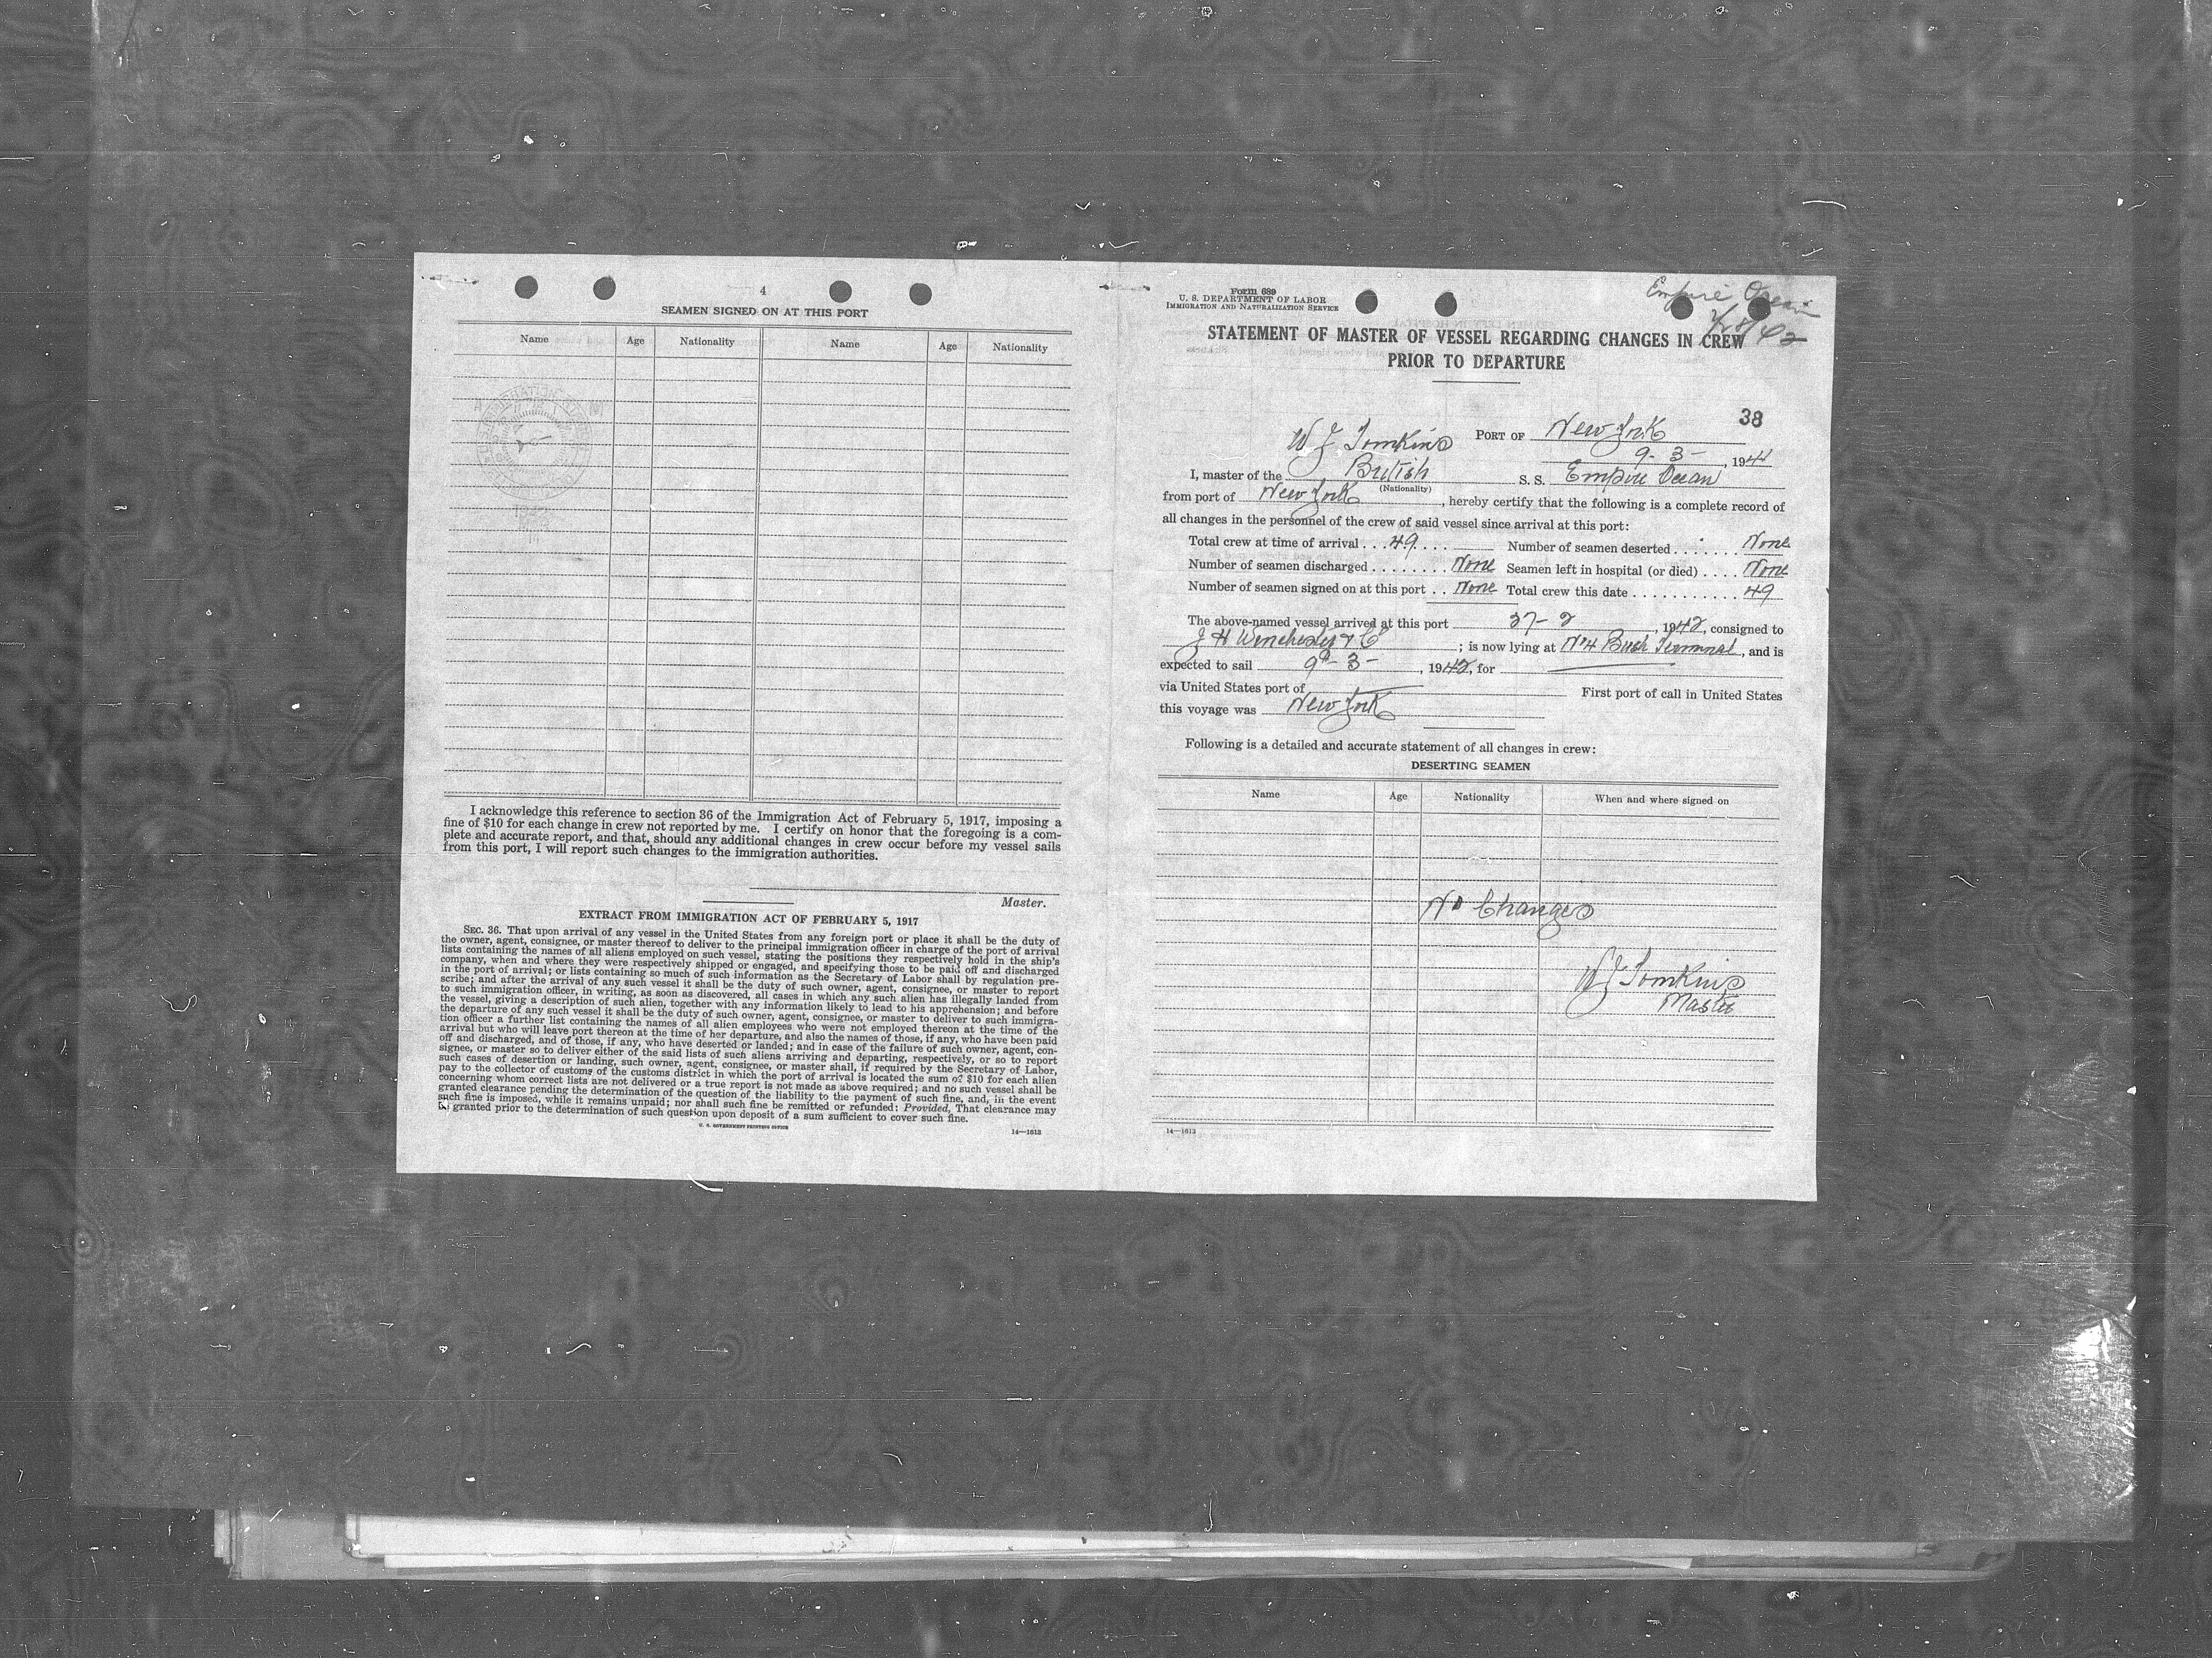 4
SEAMEN SIGNED ON AT THIS PORT
Name Age Nationality Name Age Nationality
I acknowledge this reference to section 36 of the Immigration Act of February 5, 1917, imposing a
fine of $10 for each change in crew not reported by me. I certify on honor that the foregoing is a com-
plete and accurate report, and that, should any additional changes in crew occur before my vessel sails
from this port, I will report such changes to the immigration authorities.
Master.
EXTRACT FROM IMMIGRATION ACT OF FEBRUARY 5, 1917
SEC. 36. That upon arrival of any vessel in the United States from any foreign port or place it shall be the duty of
the owner, agent, consignee, or master thereof to deliver to the principal immigration officer in charge of the port of arrival
lists containing the names of all aliens employed on such vessel, stating the positions they respectively hold in the ship's
company, when and where they were respectively shipped or engaged, and specifying those to be paid off and discharged
in the port of arrival; or lists containing so much of such information as the Secretary of Labor shall by regulation pre-
scribe; and after the arrival of any such vessel it shall be the duty of such owner, agent, consignee, or master to report
to such immigration officer, in writing, as soon as discovered, all cases in which any such alien has illegally landed from
the vessel, giving a description of such alien, together with any information likely to lead to his apprehension; and before
the departure of any such vessel it shall be the duty of such owner, agent, consignee, or master to deliver to such immigra-
tion officer a further list containing the names of all alien employees who were not employed thereon at the time of the
arrival but who will leave port thereon at the time of her departure, and also the names of those, if any, who have been paid
off and discharged, and of those, if any, who have deserted or landed; and in case of the failure of such owner, agent, con-
signee, or master so to deliver either of the said lists of such aliens arriving and departing, respectively, or so to report
such cases of desertion or landing, such owner, agent, consignee, or master shall, if required by the Secretary of Labor,
pay to the collector of customs of the customs district in which the port of arrival is located the sum of $10 for each alien
concerning whom correct lists are not delivered or a true report is not made as above required; and no such vessel shall be
granted clearance pending the determination of the question of the liability to the payment of such fine, and, in the event
such fine is imposed, while it remains unpaid; nor shall such fine be remitted or refunded: Provided, That clearance may
be granted prior to the determination of such question upon deposit of a sum sufficient to cover such fine.
U. S. GOVERNMENT PRINTING OFFICE 14—1613
Form 689
U. S. DEPARTMENT OF LABOR
IMMIGRATION AND NATURALIZATION SERVICE
Empire Ocean
STATEMENT OF MASTER OF VESSEL REGARDING CHANGES IN CREW
PRIOR TO DEPARTURE
38
W J Tomkins PORT OF New York
9-3-, 194
I, master of the British S. S. Empire Ocean
(Nationality)
from port of New York, hereby certify that the following is a complete record of
all changes in the personnel of the crew of said vessel since arrival at this port:
Total crew at time of arrival . . . 49 . . . . Number of seamen deserted . . . . . . . None
Number of seamen discharged . . . . . . . . None Seamen left in hospital (or died) . . . . None
Number of seamen signed on at this port . . None Total crew this date . . . . . . . . . . . 49
The above-named vessel arrived at this port 27-2, 1942, consigned to
J H Winchester & Co; is now lying at No 4 Bush Terminal, and is
expected to sail 9th-3-, 1942, for
via United States port of First port of call in United States
this voyage was New York
Following is a detailed and accurate statement of all changes in crew:
DESERTING SEAMEN
Name Age Nationality When and where signed on
No Changes
W J Tomkins
Master
14—1613